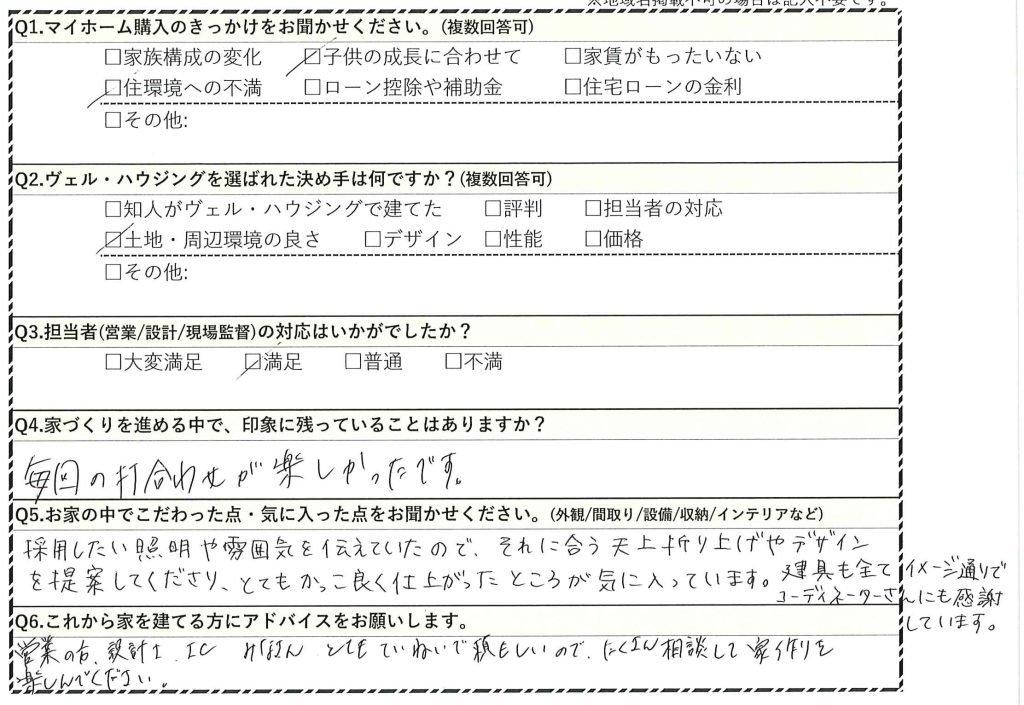 ※地域名掲載不可の場合は記入不要です。
Q1.マイホーム購入のきっかけをお聞かせください。(複数回答可)
□家族構成の変化 ☑子供の成長に合わせて □家賃がもったいない
☑住環境への不満 □ローン控除や補助金 □住宅ローンの金利
□その他:
Q2.ヴェル・ハウジングを選ばれた決め手は何ですか？(複数回答可)
□知人がヴェル・ハウジングで建てた □評判 □担当者の対応
☑土地・周辺環境の良さ □デザイン □性能 □価格
□その他:
Q3.担当者(営業/設計/現場監督)の対応はいかがでしたか？
□大変満足 ☑満足 □普通 □不満
Q4.家づくりを進める中で、印象に残っていることはありますか？
毎回の打合わせが楽しかったです。
Q5.お家の中でこだわった点・気に入った点をお聞かせください。(外観/間取り/設備/収納/インテリアなど)
採用したい照明や雰囲気を伝えていたので、それに合う天上折り上げやデザイン
を提案してくださり、とてもかっこ良く仕上がったところが気に入っています。建具も全てイメージ通りで
コーディネーターさんにも感謝
しています。
Q6.これから家を建てる方にアドバイスをお願いします。
営業の方、設計士、IC みなさん とてもていねいで頼もしいので、たくさん相談して家作りを
楽しんでください。